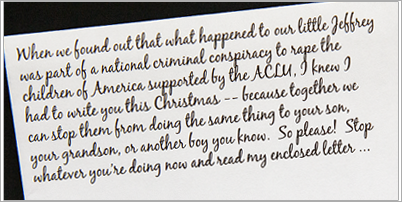 When we found out that what happened to our little Jeffrey
was part of a national criminal conspiracy to rape the
children of America supported by the ACLU, I knew I
had to write you this Christmas -- because together we
can stop them from doing the same thing to your son,
your grandson, or another boy you know. So please! Stop
whatever you're doing now and read my enclosed letter ...